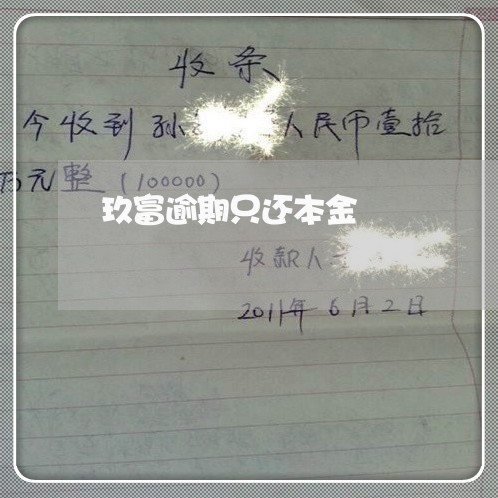 收条
今收到孙 人民币壹拾
万元整(100000)
玖富逾期只还本金
收款人
2011年6月2日